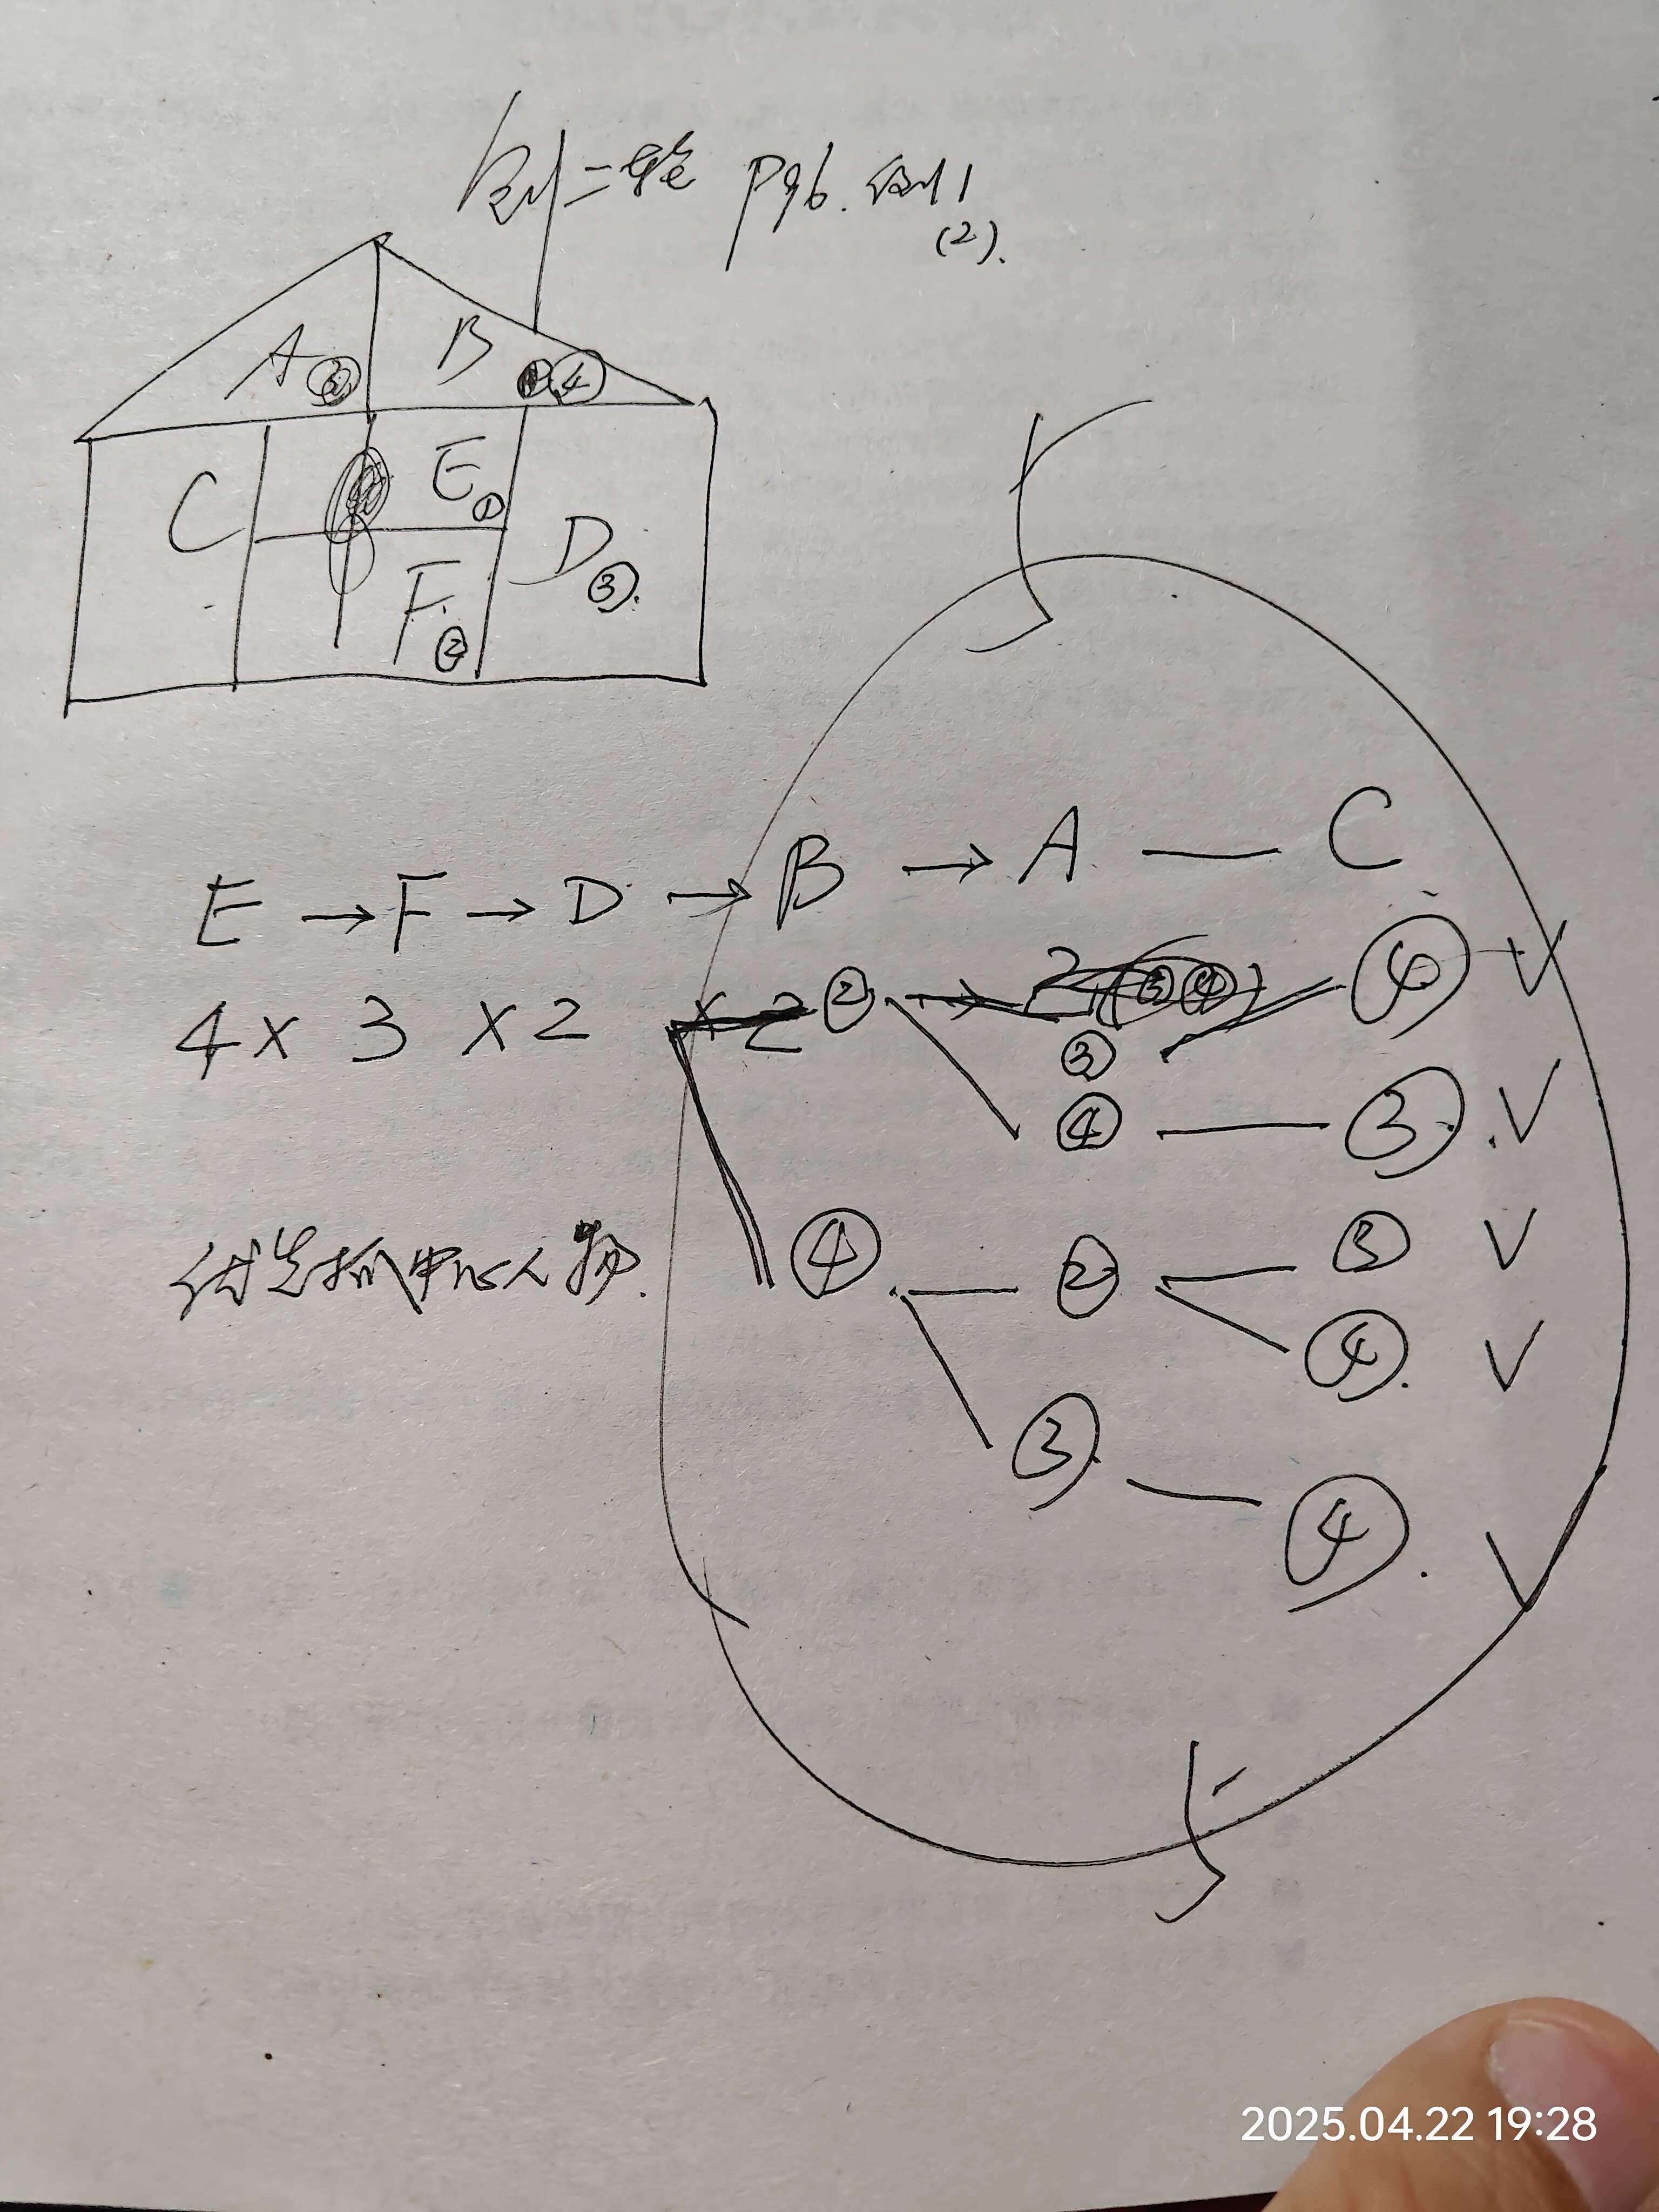 P96. 例1
(2).
A
B ④
C E ①
D ③.
F ②
E → F → D → B → A — C
4 × 3 × 2 ② ④ V
③
④ — ③. V
优先抓中心人物.
④. — ② ③ V
④. V
③ — ④. V
2025.04.22 19:28